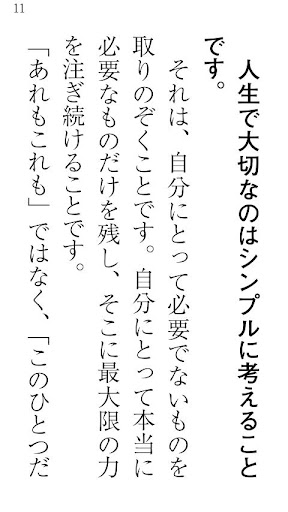 11
人生で大切なのはシンプルに考えること
です。
それは、自分にとって必要でないものを
取りのぞくことです。自分にとって本当に
必要なものだけを残し、そこに最大限の力
を注ぎ続けることです。
「あれもこれも」ではなく、「このひとつだ